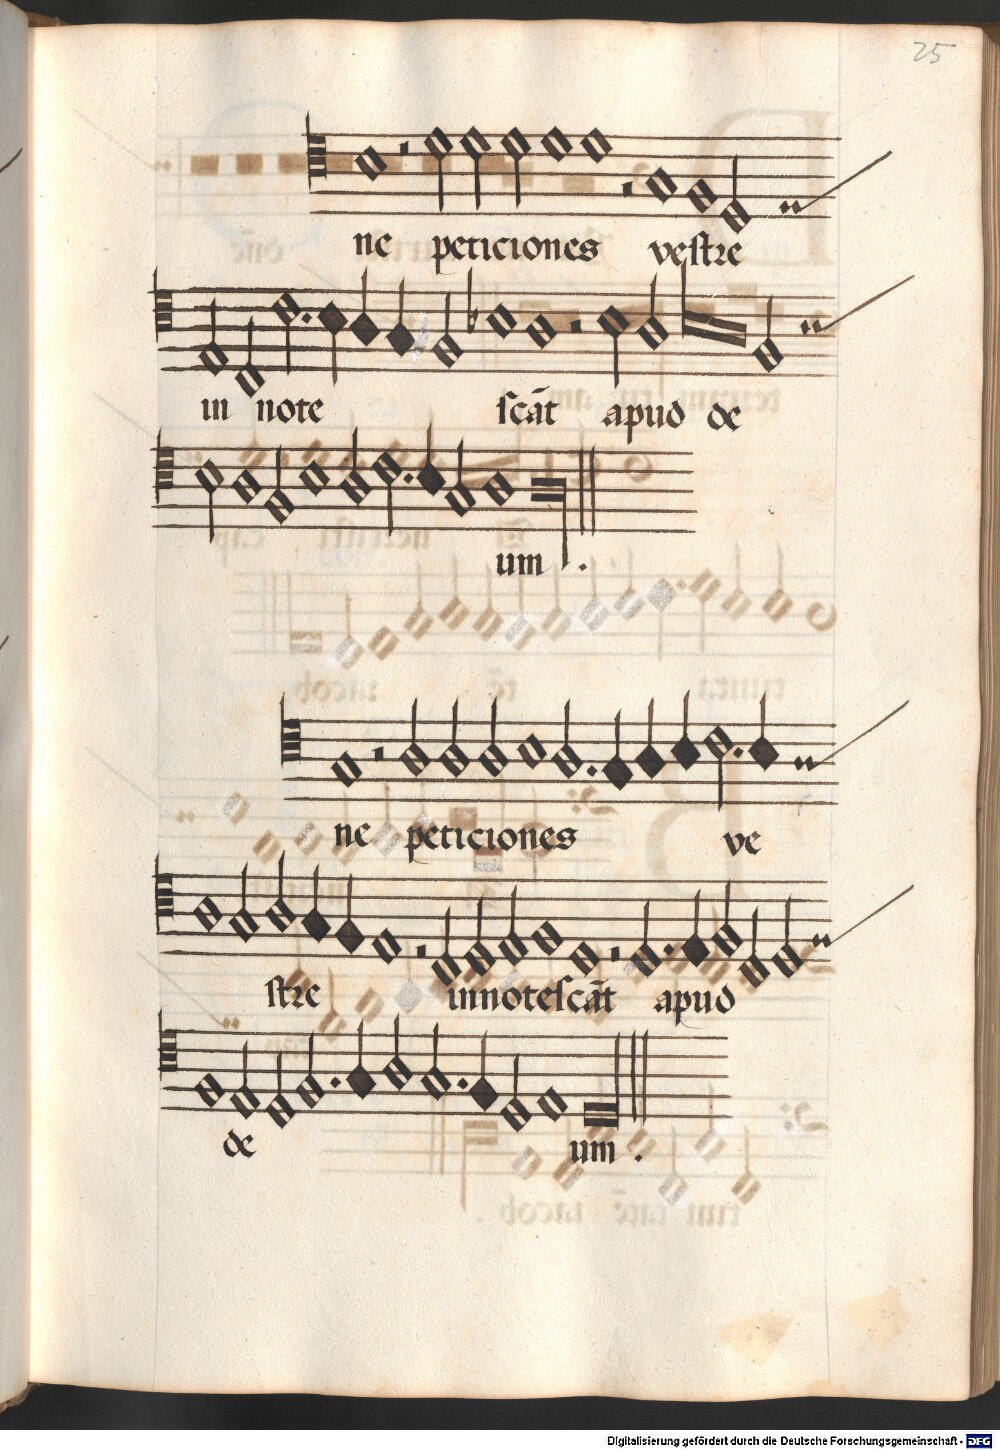 25
ne peticiones vestre
in note scāt apud de
um .
ne peticiones ve
stre innotescāt apud
de um .
Digitalisierung gefördert durch die Deutsche Forschungsgemeinschaft - DFG